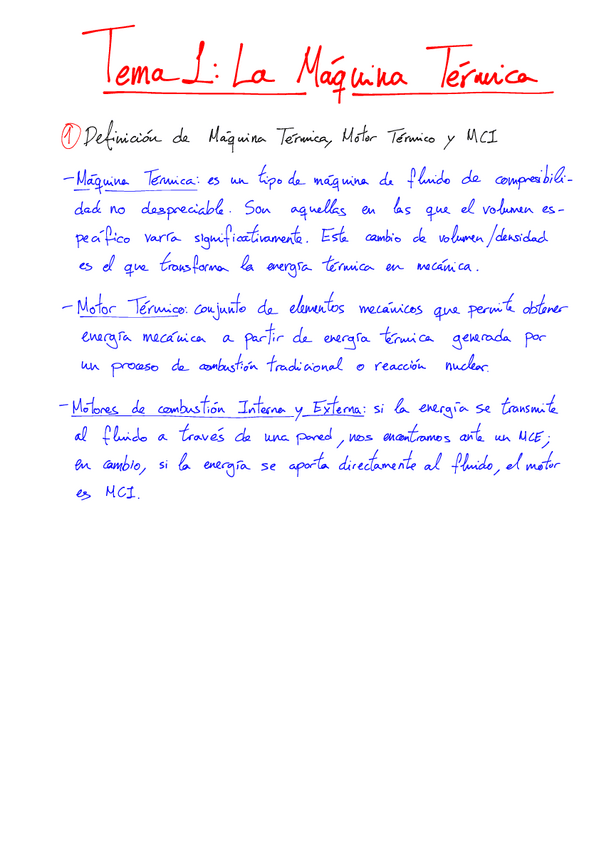 Tema 1: La Máquina Térmica
① Definición de Máquina Térmica, Motor Térmico y MCI
- Máquina Térmica: es un tipo de máquina de fluido de compresibili-
dad no despreciable. Son aquellas en las que el volumen es-
pecífico varía significativamente. Este cambio de volumen/densidad
es el que transforma la energía térmica en mecánica.
- Motor Térmico: conjunto de elementos mecánicos que permite obtener
energía mecánica a partir de energía térmica generada por
un proceso de combustión tradicional o reacción nuclear.
- Motores de combustión Interna y Externa: si la energía se transmite
al fluido a través de una pared, nos encontramos ante un MCE;
en cambio, si la energía se aporta directamente al fluido, el motor
es MCI.